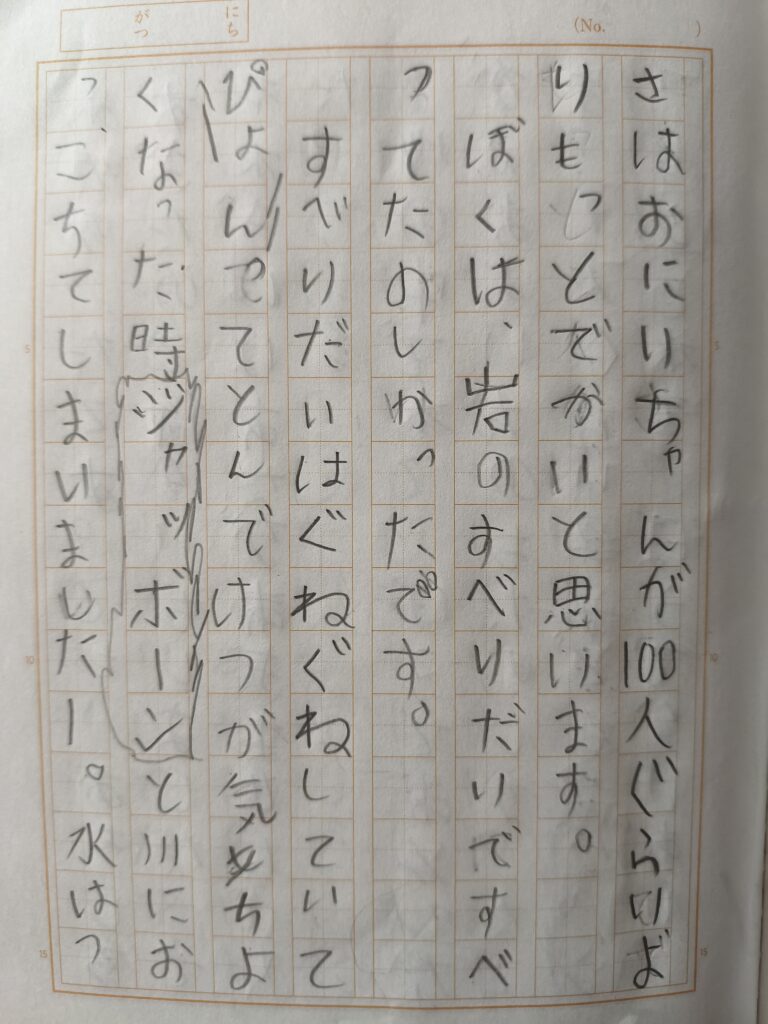 がつ にち
(No. )
さはおにいちゃんが100人ぐらいよ
りもっとでがいと思います。
ぼくは、岩のすべりだいですべ
ってたのしかったです。
すべりだいはぐねぐねしていて
ぴょんでてとんでけつが気もちよ
くなった時ジャッボーンと川にお
っこちてしまいましたー。水はつ
5
10
15
5
10
15